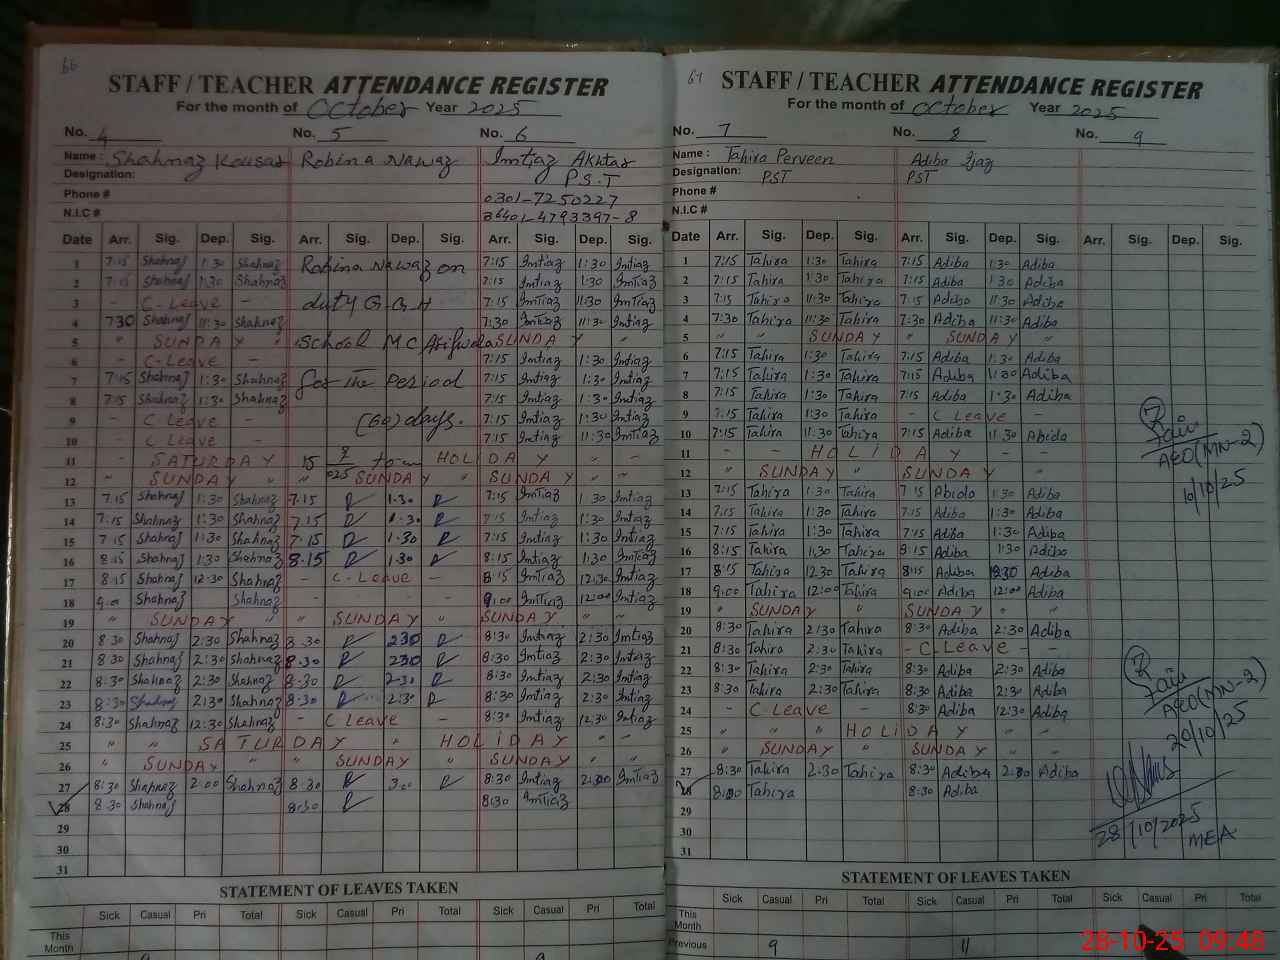 66
STAFF / TEACHER ATTENDANCE REGISTER
For the month of October Year 2025
No. 4 No. 5 No. 6
Name : Shahnaz Kousar Robina Nawaz Imtiaz Akhtar
Designation: P.S.T
Phone # 0301-7250227
N.I.C # 36401-4793397-8
Date Arr. Sig. Dep. Sig. Arr. Sig. Dep. Sig. Arr. Sig. Dep. Sig.
1 7:15 Shahnaz 1:30 Shahnaz Robina Nawaz on 7:15 Imtiaz 1:30 Imtiaz
2 7:15 Shahnaz 1:30 Shahnaz 7:15 Imtiaz 1:30 Imtiaz
3 - C-Leave - duty G-G-H 7:15 Imtiaz 11:30 Imtiaz
4 7:30 Shahnaz 11:30 Shahnaz 7:30 Imtiaz 11:30 Imtiaz
5 " SUNDAY " School M C Arifwala SUNDAY "
6 - C-Leave - 7:15 Imtiaz 1:30 Imtiaz
7 7:15 Shahnaz 1:30 Shahnaz for the Period 7:15 Imtiaz 1:30 Imtiaz
8 7:15 Shahnaz 1:30 Shahnaz 7:15 Imtiaz 1:30 Imtiaz
9 - C Leave - (60) days. 7:15 Imtiaz 1:30 Imtiaz
10 - C Leave - 7:15 Imtiaz 11:30 Imtiaz
11 SATURDAY 15 HOLIDAY " "
12 " SUNDAY " " SUNDAY " SUNDAY "
13 7:15 Shahnaz 1:30 Shahnaz 7:15 R 1:30 R 7:15 Imtiaz 1:30 Imtiaz
14 7:15 Shahnaz 1:30 Shahnaz 7:15 R 1:30 R 7:15 Imtiaz 1:30 Imtiaz
15 7:15 Shahnaz 1:30 Shahnaz 7:15 R 1:30 R 7:15 Imtiaz 1:30 Imtiaz
16 8:15 Shahnaz 1:30 Shahnaz 8:15 R 1:30 R 8:15 Imtiaz 1:30 Imtiaz
17 8:15 Shahnaz 12:30 Shahnaz - C-Leave - 8:15 Imtiaz 12:30 Imtiaz
18 9:00 Shahnaz Shahnaz - - - 9:00 Imtiaz 12:00 Imtiaz
19 " SUNDAY " SUNDAY " SUNDAY " "
20 8:30 Shahnaz 2:30 Shahnaz 8:30 R 2:30 R 8:30 Imtiaz 2:30 Imtiaz
21 8:30 Shahnaz 2:30 Shahnaz 8:30 R 2:30 R 8:30 Imtiaz 2:30 Imtiaz
22 8:30 Shahnaz 2:30 Shahnaz 8:30 R 2:30 R 8:30 Imtiaz 2:30 Imtiaz
23 8:30 Shahnaz 2:30 Shahnaz 8:30 R 2:30 R 8:30 Imtiaz 2:30 Imtiaz
24 8:30 Shahnaz 12:30 Shahnaz - C Leave - 8:30 Imtiaz 12:30 Imtiaz
25 " " SATURDAY " HOLIDAY " "
26 " SUNDAY " " SUNDAY " SUNDAY "
27 8:30 Shahnaz 2:00 Shahnaz 8:30 R 3:00 R 8:30 Imtiaz 2:00 Imtiaz
28 8:30 Shahnaz 8:30 R 8:30 Imtiaz
29
30
31
STATEMENT OF LEAVES TAKEN
Sick Casual Pri Total Sick Casual Pri Total Sick Casual Pri Total
This Month
67
STAFF / TEACHER ATTENDANCE REGISTER
For the month of October Year 2025
No. 7 No. 8 No. 9
Name : Tahira Perveen Adiba Ijaz
Designation: PST PST
Phone #
N.I.C #
Date Arr. Sig. Dep. Sig. Arr. Sig. Dep. Sig. Arr. Sig. Dep. Sig.
1 7:15 Tahira 1:30 Tahira 7:15 Adiba 1:30 Adiba
2 7:15 Tahira 1:30 Tahira 7:15 Adiba 1:30 Adiba
3 7:15 Tahira 11:30 Tahira 7:15 Adiba 11:30 Adiba
4 7:30 Tahira 11:30 Tahira 7:30 Adiba 11:30 Adiba
5 " " SUNDAY " SUNDAY "
6 7:15 Tahira 1:30 Tahira 7:15 Adiba 1:30 Adiba
7 7:15 Tahira 1:30 Tahira 7:15 Adiba 1:30 Adiba
8 7:15 Tahira 1:30 Tahira 7:15 Adiba 1:30 Adiba
9 7:15 Tahira 1:30 Tahira - C Leave -
10 7:15 Tahira 11:30 Tahira 7:15 Adiba 11:30 Abida
11 - - HOLIDAY - -
12 " SUNDAY " SUNDAY "
13 7:15 Tahira 1:30 Tahira 7:15 Abida 1:30 Adiba
14 7:15 Tahira 1:30 Tahira 7:15 Adiba 1:30 Adiba
15 7:15 Tahira 1:30 Tahira 7:15 Adiba 1:30 Adiba
16 8:15 Tahira 1:30 Tahira 8:15 Adiba 1:30 Adiba
17 8:15 Tahira 12:30 Tahira 8:15 Adiba 12:30 Adiba
18 9:00 Tahira 12:00 Tahira 9:00 Adiba 12:00 Adiba
19 " SUNDAY " SUNDAY " "
20 8:30 Tahira 2:30 Tahira 8:30 Adiba 2:30 Adiba
21 8:30 Tahira 2:30 Tahira - C-Leave - -
22 8:30 Tahira 2:30 Tahira 8:30 Adiba 2:30 Adiba
23 8:30 Tahira 2:30 Tahira 8:30 Adiba 2:30 Adiba
24 - C Leave - 8:30 Adiba 12:30 Adiba
25 " " " HOLIDAY "
26 " SUNDAY " SUNDAY " "
27 8:30 Tahira 2:30 Tahira 8:30 Adiba 2:30 Adiba
28 8:00 Tahira 8:30 Adiba
29
30
31
AEO(MN-2)
10/10/25
AEO(MN-2)
20/10/25
28/10/2025
MEA
STATEMENT OF LEAVES TAKEN
Sick Casual Pri Total Sick Casual Pri Total Sick Casual Pri Total
This Month
Previous 9 11
28-10-25 09:48